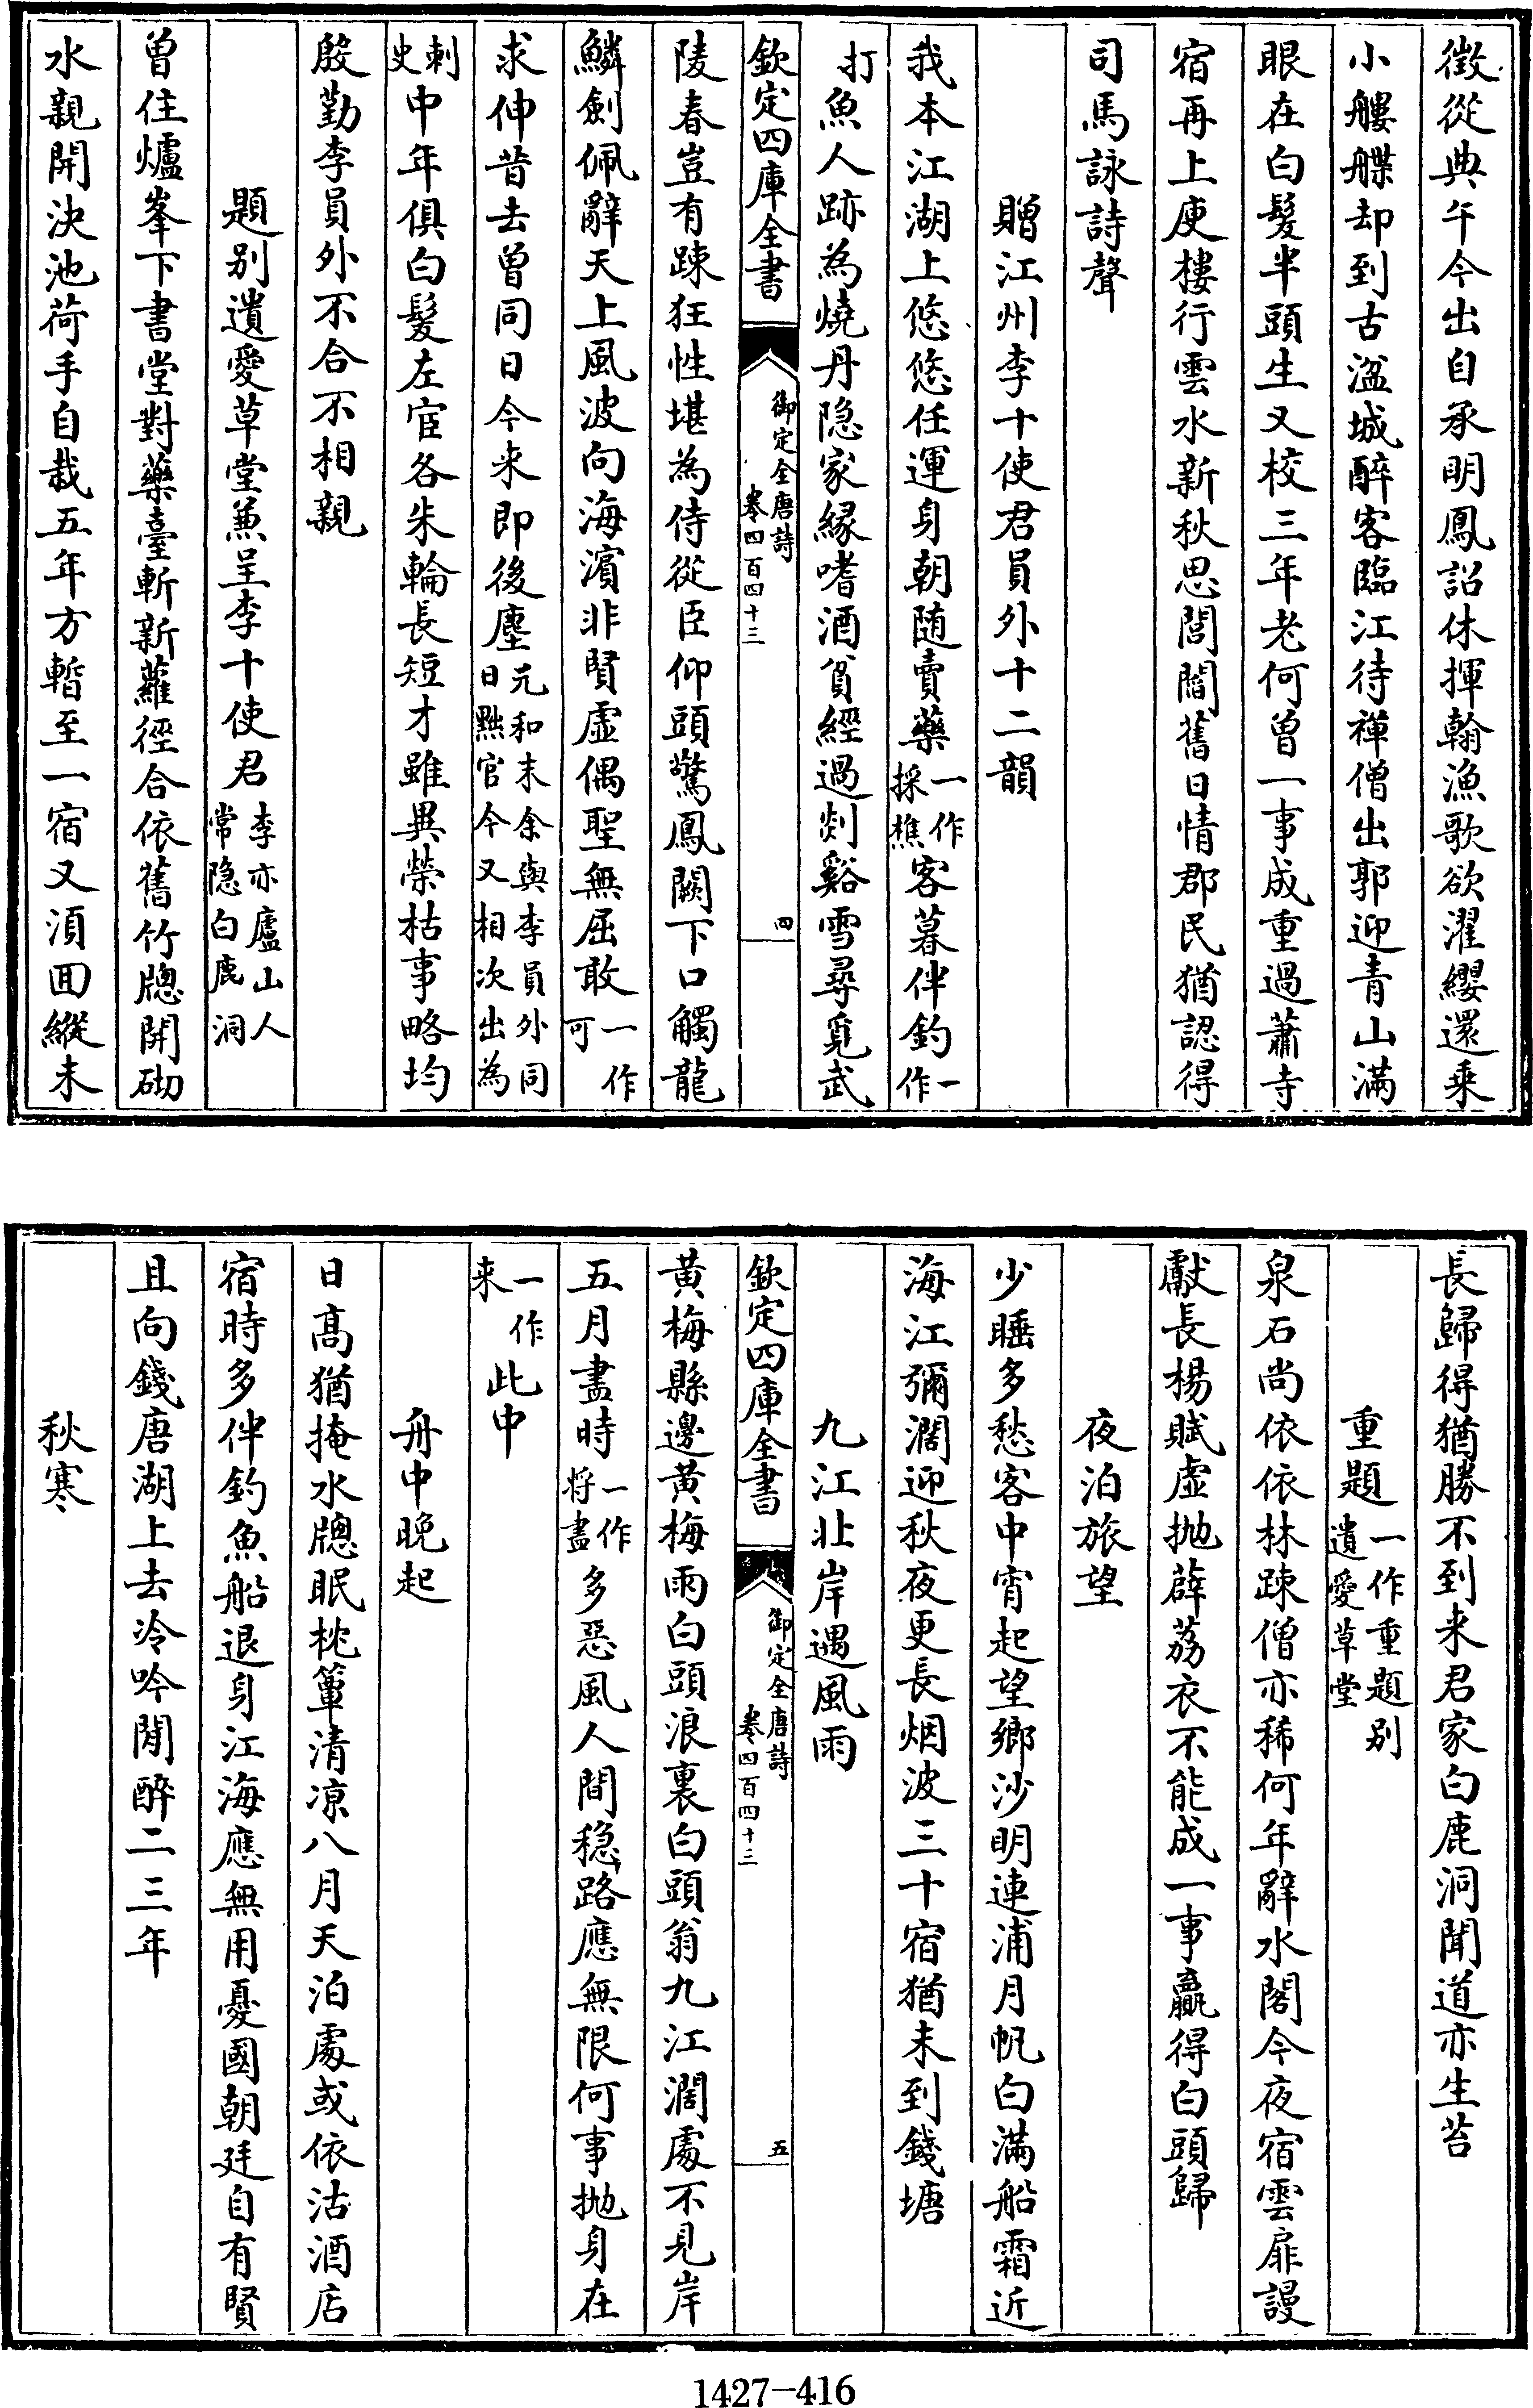 徵從典午今出自承明鳳詔休揮翰漁歌欲濯纓還乗
小艛艓却到古湓城醉客臨江待禪僧出郭迎青山滿
眼在白髮半頭生又校三年老何曾一事成重過蕭寺
宿再上庾樓行雲水新秋思閭閻舊日情郡民猶認得
司馬詠詩聲
贈江州李十使君員外十二韻
我本江湖上悠悠任運身朝随賣藥一作採樵客暮伴釣一作
打魚人跡為燒丹隐家縁嗜酒貧經過剡谿雪尋覓武
欽定四庫全書
御定全唐詩
卷四百四十三
四
陵春豈有踈狂性堪為侍從臣仰頭驚鳳闕下口觸龍
鱗劍佩辭天上風波向海濵非賢虚偶聖無屈敢一作可
求伸昔去曾同日今来即後塵元和末余與李員外同日黜官今又相次出為
刺史中年俱白髮左宦各朱輪長短才雖異榮枯事略均
殷勤李員外不合不相親
題别遺愛草堂兼呈李十使君李亦廬山人常隐白鹿洞
曾住爐峯下書堂對藥臺斬新蘿徑合依舊竹牕開砌
水親開決池荷手自栽五年方暫至一宿又湏囬縱未
長歸得猶勝不到来君家白鹿洞聞道亦生苔
重題一作重題别遺愛草堂
泉石尚依依林踈僧亦稀何年辭水閣今夜宿雲扉謾
獻長楊賦虚抛薜荔衣不能成一事贏得白頭歸
夜泊旅望
少睡多愁客中宵起望鄉沙明連浦月帆白滿船霜近
海江彌濶迎秋夜更長烟波三十宿猶未到錢塘
九江北岸遇風雨
欽定四庫全書
御定全唐詩
卷四百四十三
五
黄梅縣邊黄梅雨白頭浪裏白頭翁九江濶處不見岸
五月盡時一作将盡多惡風人間穏路應無限何事抛身在
一作来此中
舟中晚起
日髙猶掩水牕眠枕簟清凉八月天泊處或依沽酒店
宿時多伴釣魚船退身江海應無用憂國朝廷自有賢
且向錢唐湖上去冷吟閒醉二三年
秋寒
1427—416